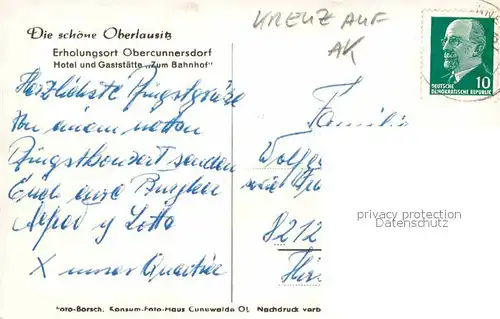 Die schöne Oberlausitz
Erholungsort Obercunnersdorf
Hotel und Gaststätte „Zum Bahnhof"
KREUZ AUF
AK
DEUTSCHE
DEMOKRATISCHE REPUBLIK
10
Herzlichste Pfingstgrüße
Von einem netten
Pfingstkonzert senden
Euch
Alfred u Lotte
X unser Quartier
Familie
8212
privacy protection
Datenschutz
Foto-Borsch, Konsum-Foto-Haus Cunewalde OL. Nachdruck verb